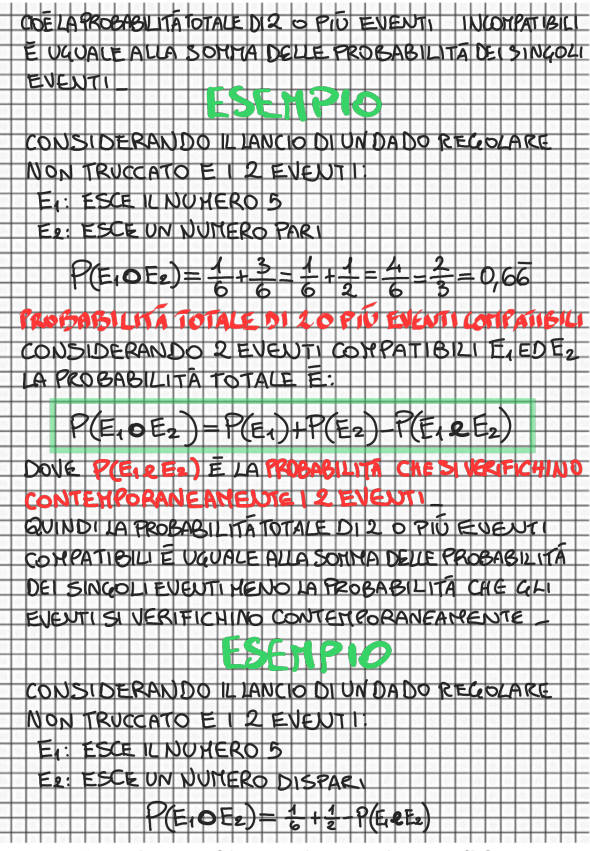 CIOÈ LA PROBABILITÀ TOTALE DI 2 O PIÙ EVENTI INCOMPATIBILI
È UGUALE ALLA SOMMA DELLE PROBABILITÀ DEI SINGOLI
EVENTI_
ESEMPIO
CONSIDERANDO IL LANCIO DI UN DADO REGOLARE
NON TRUCCATO E I 2 EVENTI:
E₁: ESCE IL NUMERO 5
E₂: ESCE UN NUMERO PARI
P(E₁ O E₂) = 1/6 + 3/6 = 1/6 + 1/2 = 4/6 = 2/3 = 0,66̅
PROBABILITÀ TOTALE DI 2 O PIÙ EVENTI COMPATIBILI
CONSIDERANDO 2 EVENTI COMPATIBILI E₁ ED E₂
LA PROBABILITÀ TOTALE È:
P(E₁ O E₂) = P(E₁) + P(E₂) - P(E₁ e E₂)
DOVE P(E₁ e E₂) È LA PROBABILITÀ CHE SI VERIFICHINO
CONTEMPORANEAMENTE I 2 EVENTI_
QUINDI LA PROBABILITÀ TOTALE DI 2 O PIÙ EVENTI
COMPATIBILI È UGUALE ALLA SOMMA DELLE PROBABILITÀ
DEI SINGOLI EVENTI MENO LA PROBABILITÀ CHE GLI
EVENTI SI VERIFICHINO CONTEMPORANEAMENTE_
ESEMPIO
CONSIDERANDO IL LANCIO DI UN DADO REGOLARE
NON TRUCCATO E I 2 EVENTI:
E₁: ESCE IL NUMERO 5
E₂: ESCE UN NUMERO DISPARI
P(E₁ O E₂) = 1/6 + 1/2 - P(E₁ e E₂)